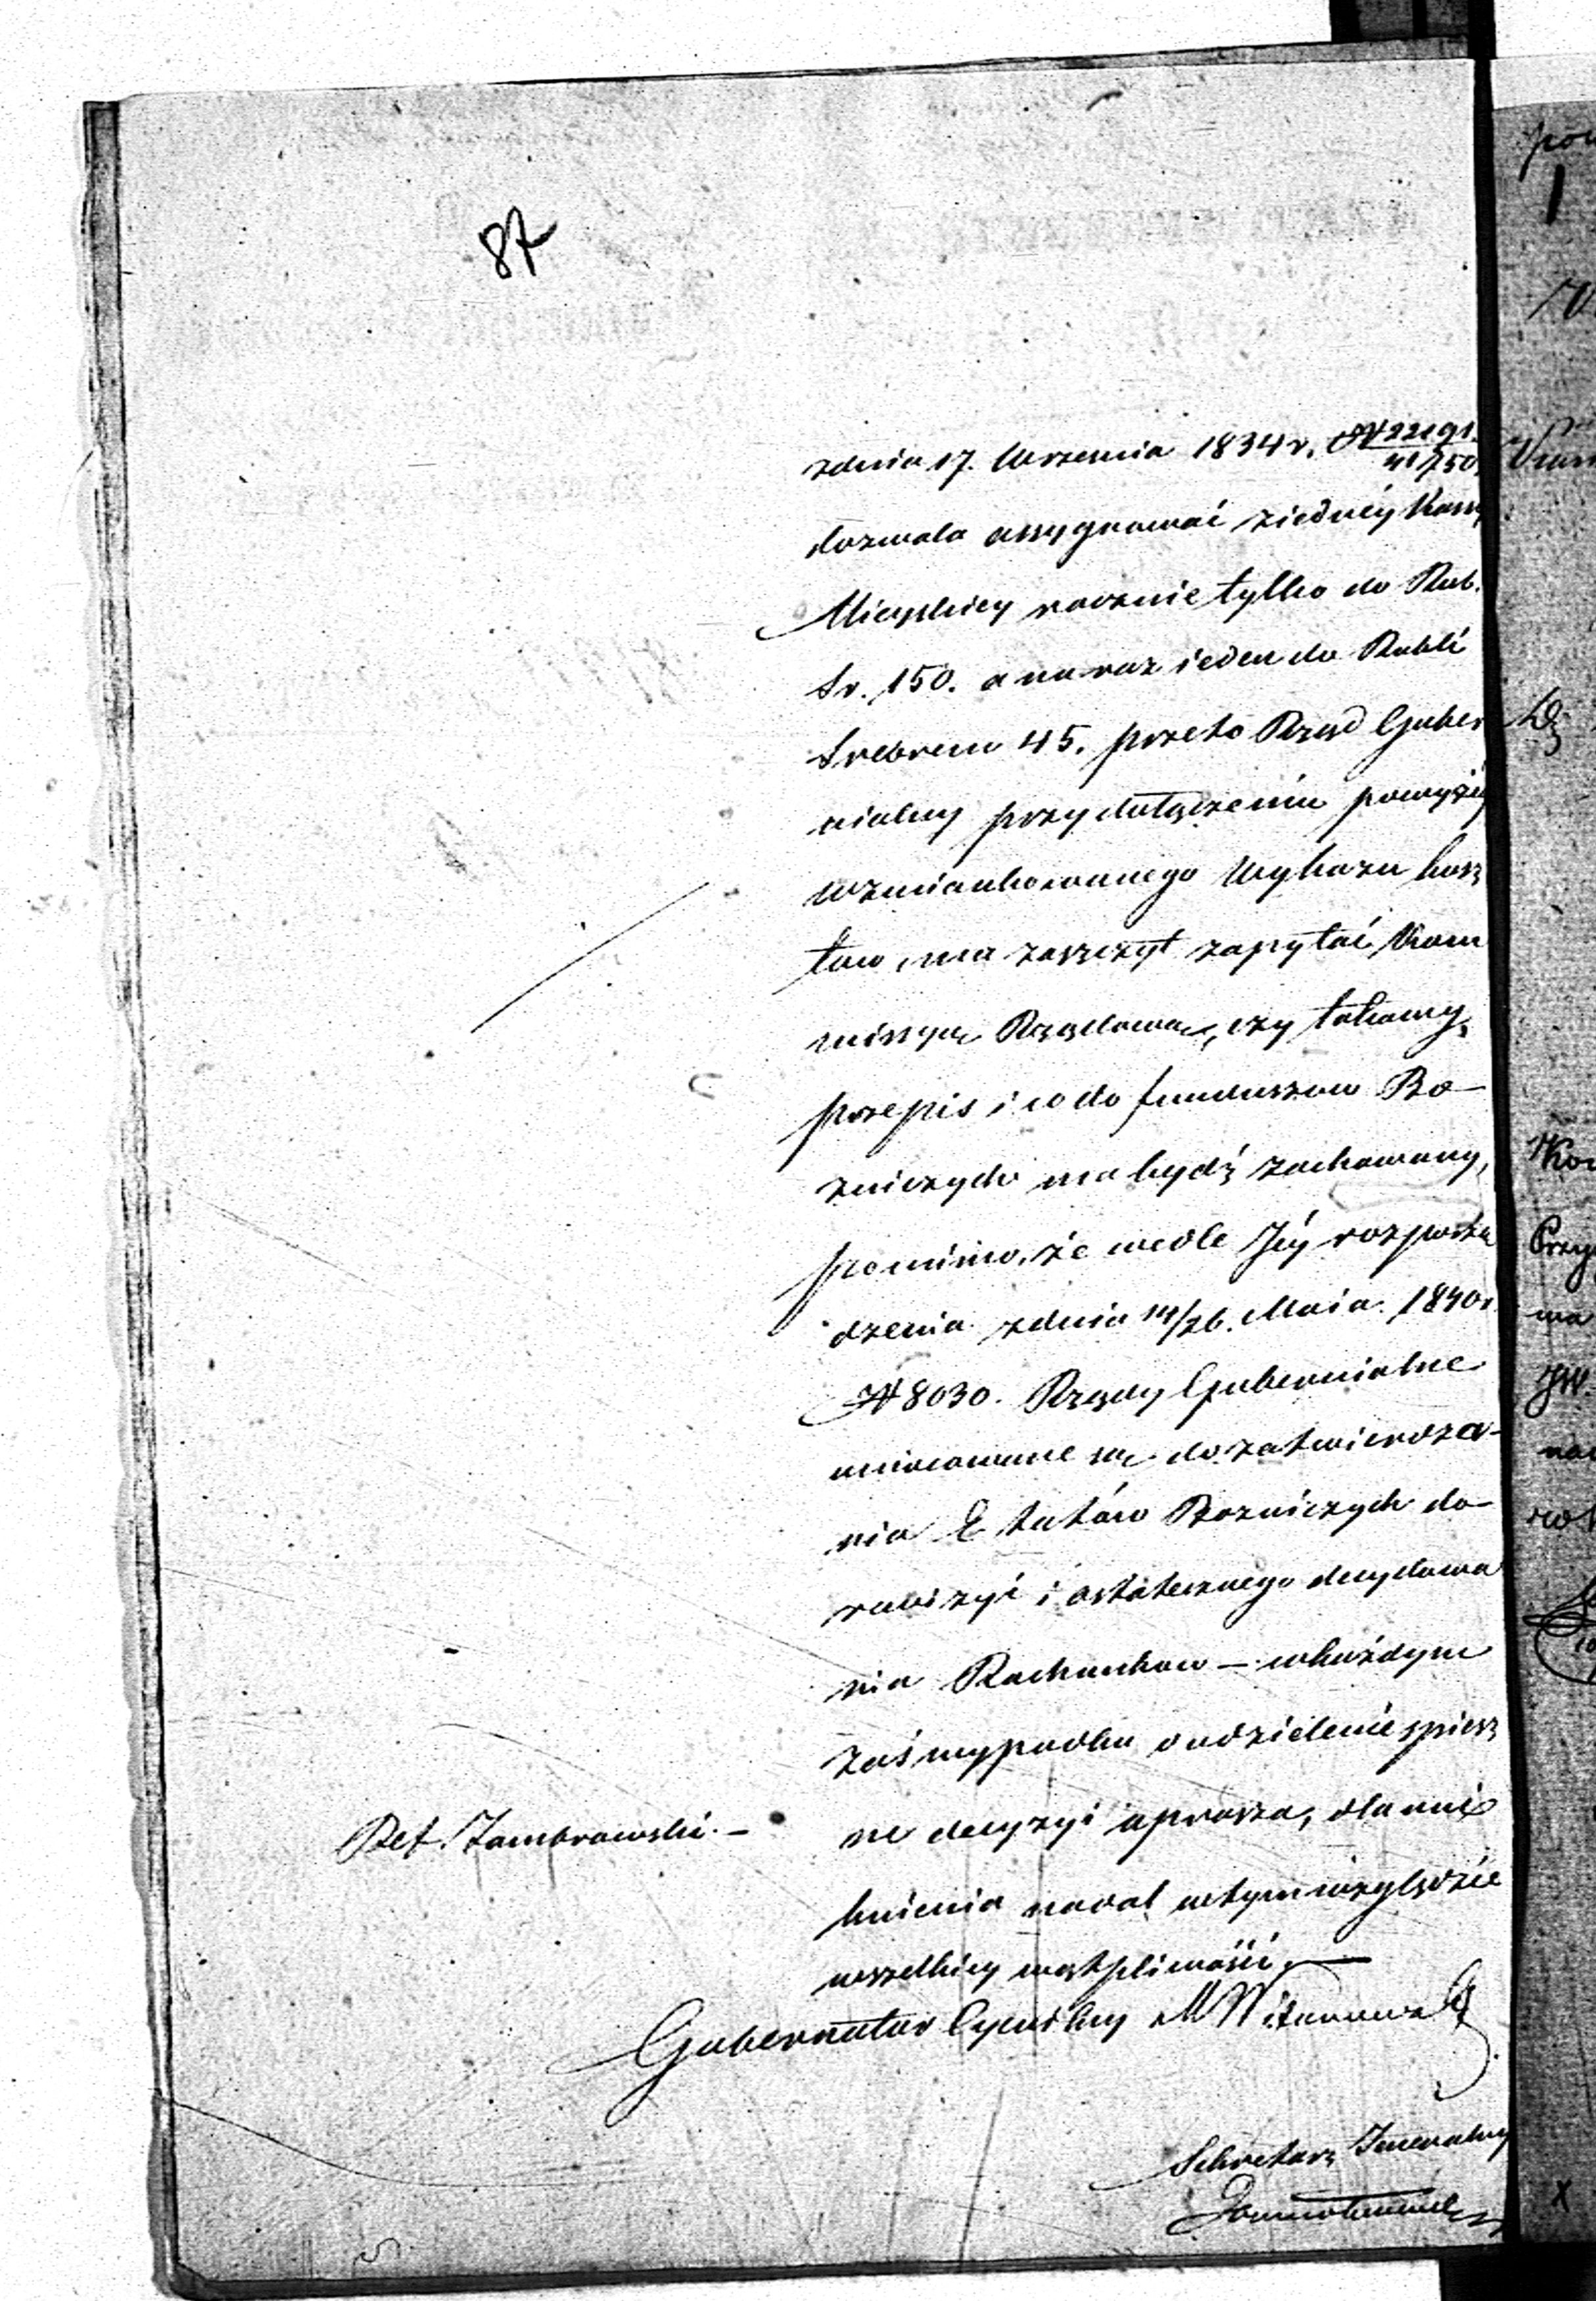 87
zdnia 17. Września 1834 r. N 22191/41750
dozwala assygnować ziednéy Kassy
Mieyskiey rocznie tylko do Rub.
Sr. 150. a na raz ieden do Rubli
Srebrem 45. przeto Rząd Guber
nialny przy dołączeniu powyżéy
wzmiankowanego Wykazu kosz
tow, ma zaszczyt zapytać Kom
missyą Rządową, czy takowy
przepis i co do funduszow Bo-
żniczych ma bydź zachowany,
pomimo, że wedle Jéy rozporzą
dzenia zdnia 14/26. Maia 1840 r.
N 8030. Rządy Gubernialne
umocowane są do zatwierdza-
nia Etatów Bożniczych do-
rewizyi i ostatecznego decydowa
nia Rachunkow – wkażdym
zaś wypadku o udzielenie spiesz
ne decyzyi uprasza, dla uni
knienia nadal wtym względzie
wszelkiey wątpliwości. —
Ref. Zambrowski. –
Gubernator Cywilny
Sekretarz Jeneralny